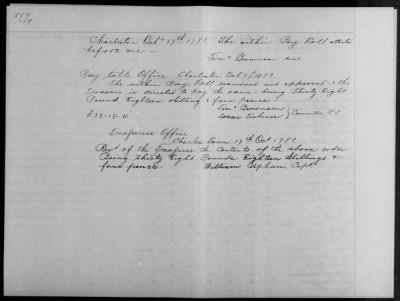 Charleston Octr 17th 1781. The within Pay Roll attested
before me —
Timy Brownson
Pay table Office, Charleston Oct 17 1781
The within Pay Roll examined and approved & the
Treasurer is directed to pay the same being Thirty Eight
Pound Eighteen shilling & four pence —
£38-18-4
Timy Brownson
Isaac Tichenor
Treasurers Office
Charles Town 17th Oct 1781
Recd of the Treasurer the Contents of the above order
Being thirty Eight Pounds Eighteen Shillings &
four pence William Upham Capt